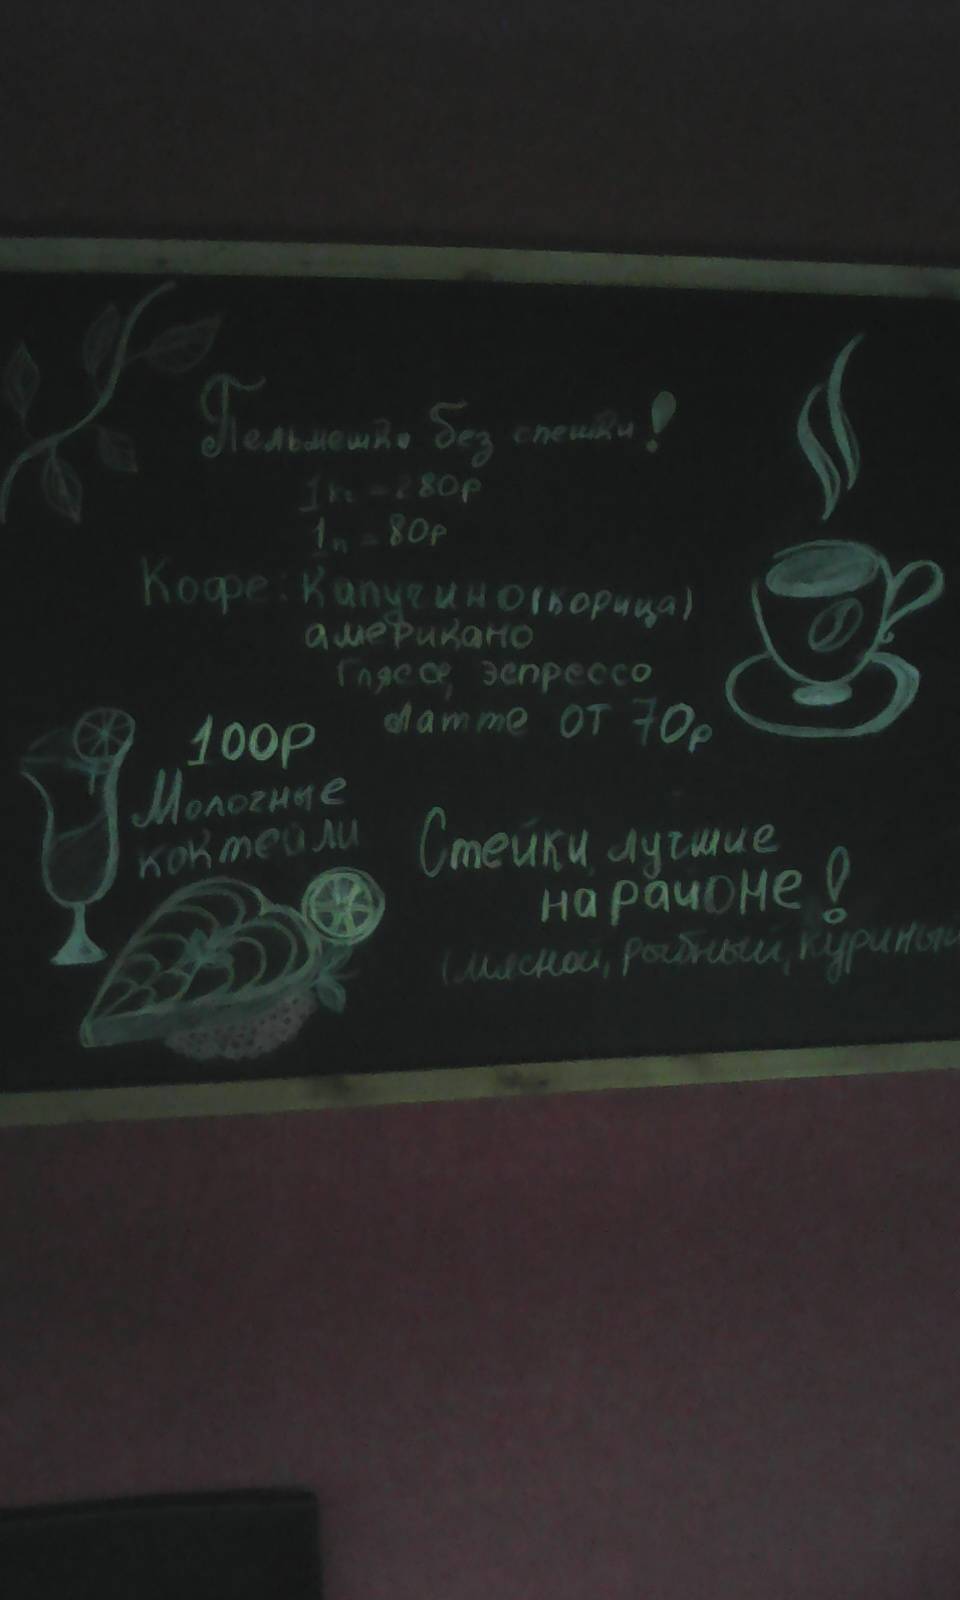 Пельмешки без спешки!
1к = 280р
1п = 80р
Кофе: Капучино (корица)
американо
Глясе, эспрессо
Латте от 70р
100р
Молочные
коктейли
Стейки, лучшие
на районе!
(мясной, рыбный, куриный